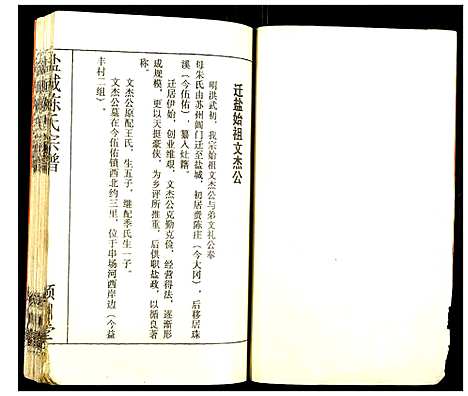 迁盐始祖文杰公
明洪武初，我宗始祖文杰公与弟文礼公奉
母朱氏由苏州阊门迁至盐城，初居贲陈庄（今大冈），后移居珠
溪（今伍佑），纂入灶籍。
迁居伊始，创业维艰，文杰公克勤克俭，经营得法，逐渐形
成规模，更以天担豪侠，为乡评所推重，后供职盐政，以循良著
称。
文杰公原配王氏，生五子，继配季氏生一子。
文杰公墓在今伍佑镇西北约三里，位于串场河西岸边（今益
丰村二组）。
盐城陈氏宗谱
颍川堂